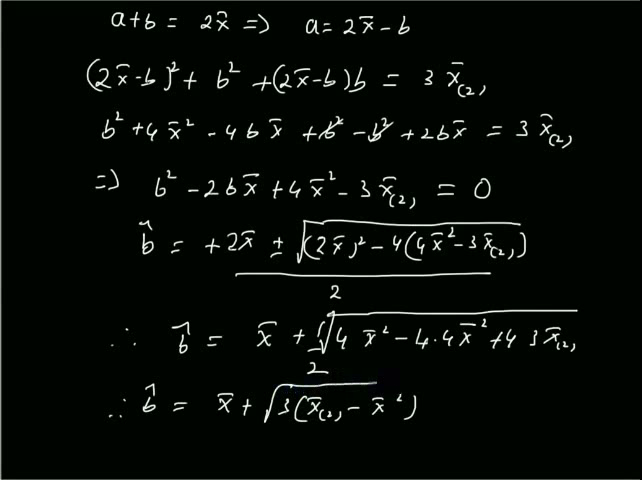 a+b = 2x̄ => a = 2x̄-b
(2x̄-b)² + b² + (2x̄-b)b = 3 x̄₍₂₎
b² + 4x̄² - 4bx̄ + b² - b² + 2bx̄ = 3 x̄₍₂₎
=> b² - 2bx̄ + 4x̄² - 3x̄₍₂₎ = 0
b̂ = +2x̄ ± √((2x̄)² - 4(4x̄² - 3x̄₍₂₎))
2
∴ b̂ = x̄ + ½√(4 x̄² - 4·4x̄² + 4 3x̄₍₂₎
∴ b̂ = x̄ + √(3(x̄₍₂₎ - x̄²)